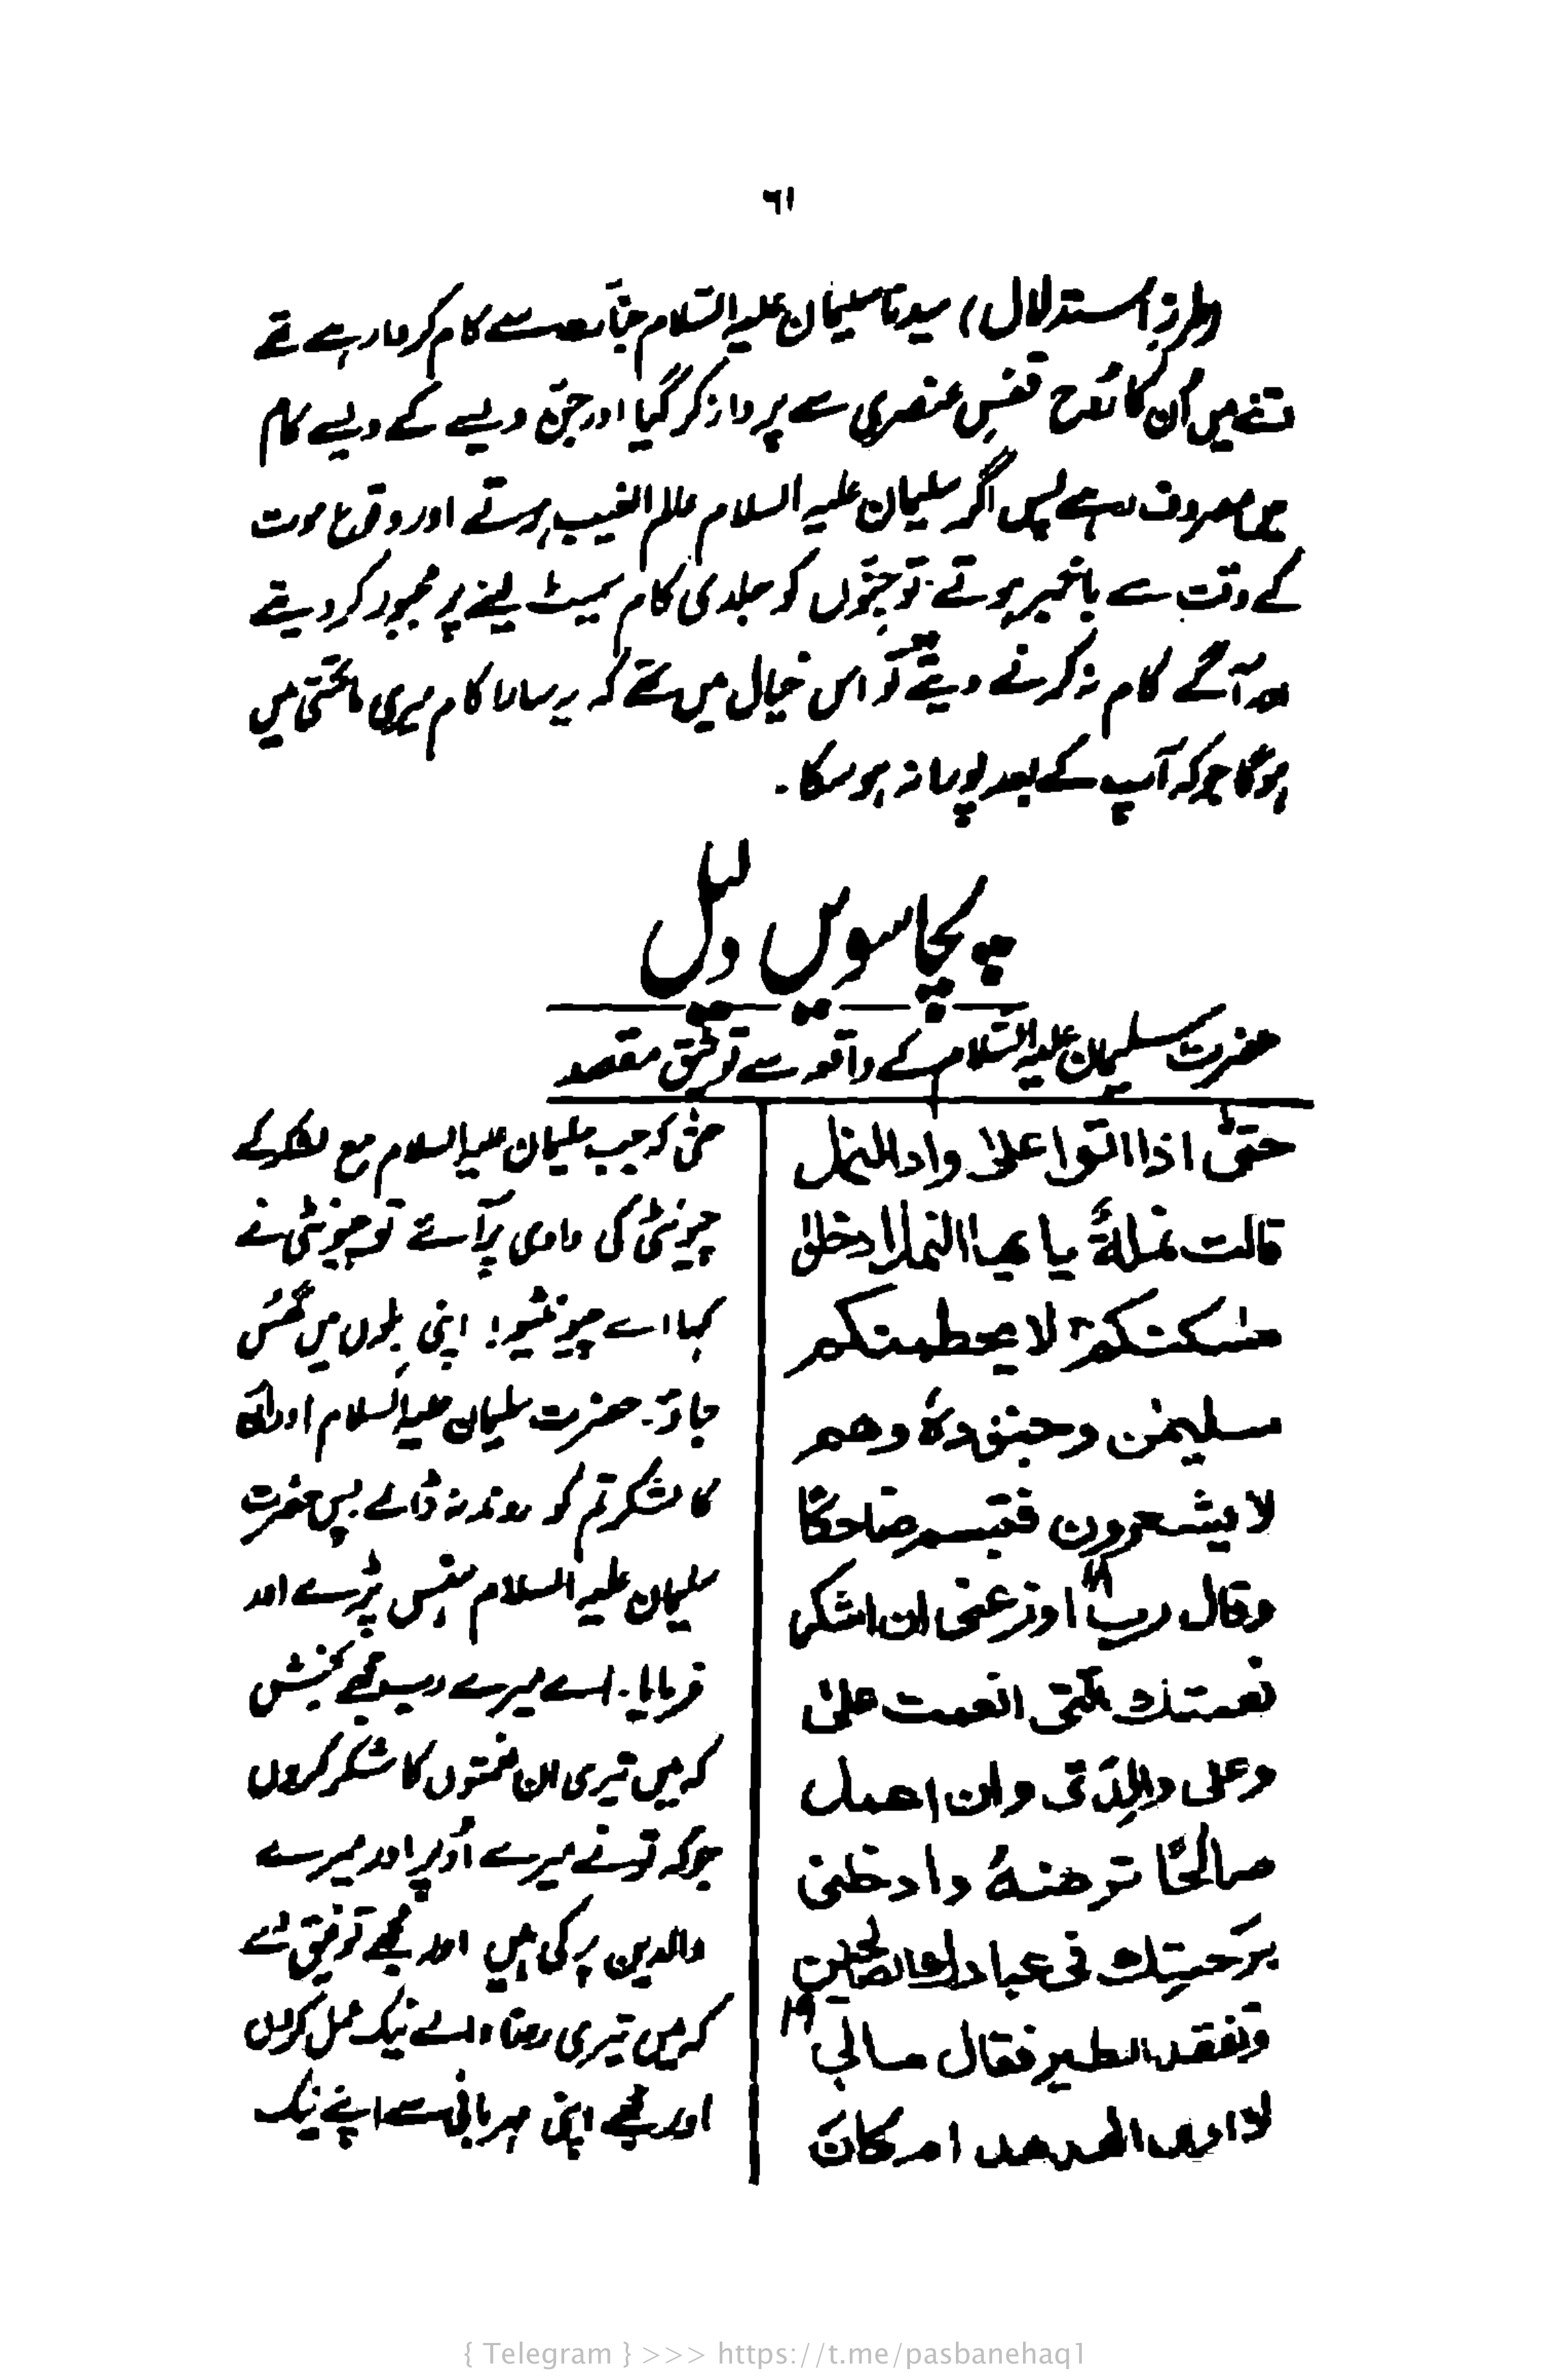 ٦١
(طرزِ استدلال) سیدنا سلیمان علیہ السّلام جنّات سے کام کروا رہے تھے
اتنے میں اُن کا رُوح قفسِ عنصری سے پرواز کر گیا اور جنّ ویسے کے ویسے کام
میں مصروف رہے پس اگر سلیمان علیہ السلام عالم الغیب ہوتے اور وقوع موت
کے وقت سے باخبر ہوتے۔ تو جنّوں کو جلدی کام سمیٹ لینے پر مجبور کر دیتے
اور آگے کام نہ کرنے دیتے گو اس خیال میں تھے کہ یہ سارا کام میری ماتحتی میں
ہوگا جو کہ آپ کے بعد پورا نہ ہو سکا۔
پچاسویں دلیل
حضرت سلیمان علیہ السّلام کے واقعہ سے توثیق مقصد
حتیّٰ اذا اتوا علیٰ واد النمل
قالت نملةٌ یا یھا النمل ادخلوا
مسٰکنکم لا یحطمنکم
سلیمٰن وجنودہٗ وھم
لا یشعرون فتبسم ضاحکًا
وقال رب ۱۸ اوزعنی ان اشکر
نعمتك التی انعمت علیّ
وعلی والِدَیّ وان اعمل
صالحًا ترضٰہُ وادخلنی
برَحمتِك فی عبادك الصالحین ۱۹
وتفقد الطیر فقال مالی
لا اری الھدھد ام کان
حتّٰی کہ جب سلیمان علیہ السلام مع لشکر کے
چیونٹی کی وادی پر آئے تو چیونٹی نے
کہا اے چیونٹیو! اپنی بلوں میں گھس
جاؤ۔ حضرت سلیمان علیہ السلام اور ان
کا لشکر تم کو روند نہ ڈالے پس حضرت
سلیمان علیہ السلام ہنس پڑے اور
فرمایا۔ اے میرے رب مجھے بخش
کہ میں تیری ان نعمتوں کا شکر کروں
جو کہ تو نے میرے اُوپر اور میرے
والدین پر کی ہیں اور مجھے توفیق دے
کہ میں تیری رضا والے نیک عمل کروں
اور مجھے اپنی مہربانی سے اپنے نیک
{ Telegram } >>> https://t.me/pasbanehaq1